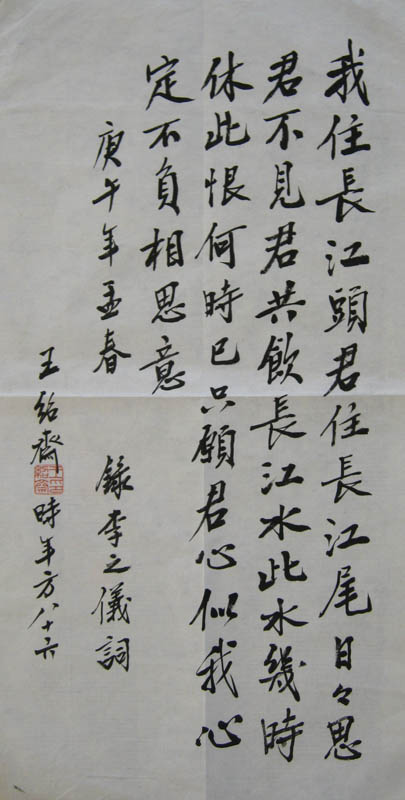 我住長江頭君住長江尾日々思
君不見君共飲長江水此水幾時
休此恨何時已只願君心似我心
定不負相思意
庚午年孟春
錄李之儀詞
王紹齋
時年方八十六